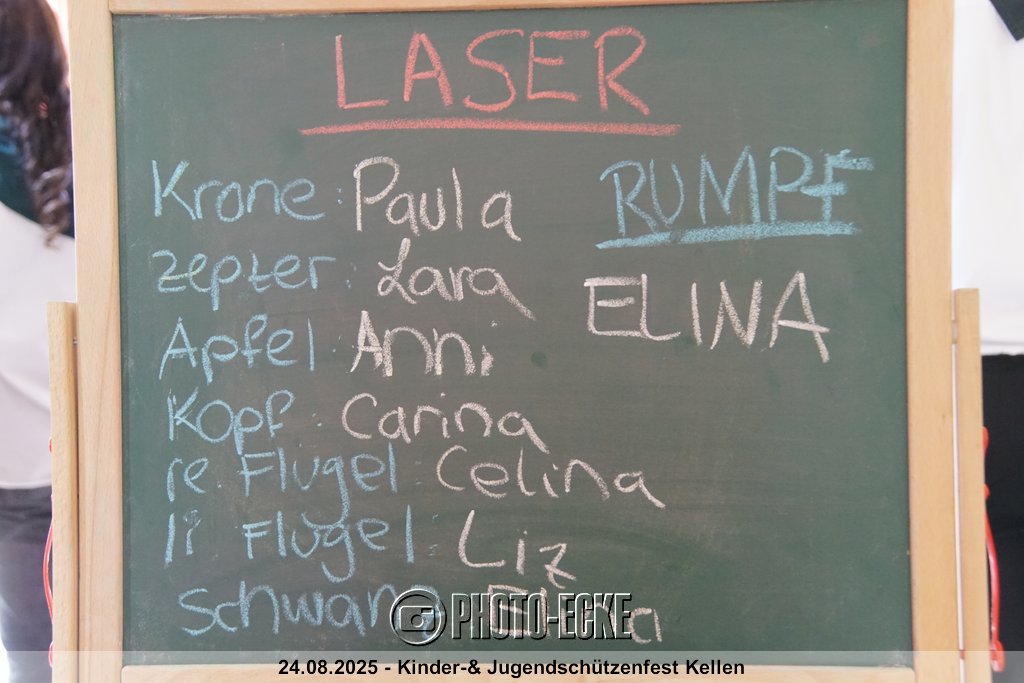 LASER
Krone: Paula
Zepter: Lara
Apfel: Anni
Kopf: Canna
re Flügel: Celina
li Flügel: Liz
Schwanz Elina
RUMPF
ELINA
PHOTO-ECKE
24.08.2025 - Kinder-& Jugendschützenfest Kellen